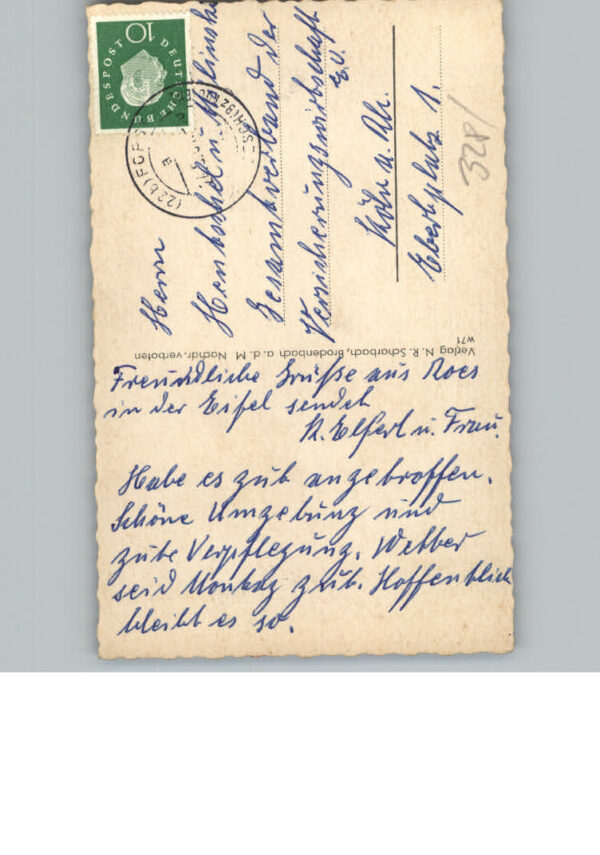 Freundliche Grüße aus Roes
in der Eifel sendet
K. Elfert u. Frau.
Habe es gut angetroffen.
Schöne Umgebung und
gute Verpflegung. Wetter
seid Montag gut. Hoffentlich
bleibt es so.
Herrn
Gesamtverband der
Versicherungswirtschaft
E.V.
Köln a. Rh.
Ebertplatz 1.
328/
Verlag N. R. Schorbach, Brodenbach a. d. M Nachdr. verboten
W71
10
DEUTSCHE BUNDESPOST
(22b)
a